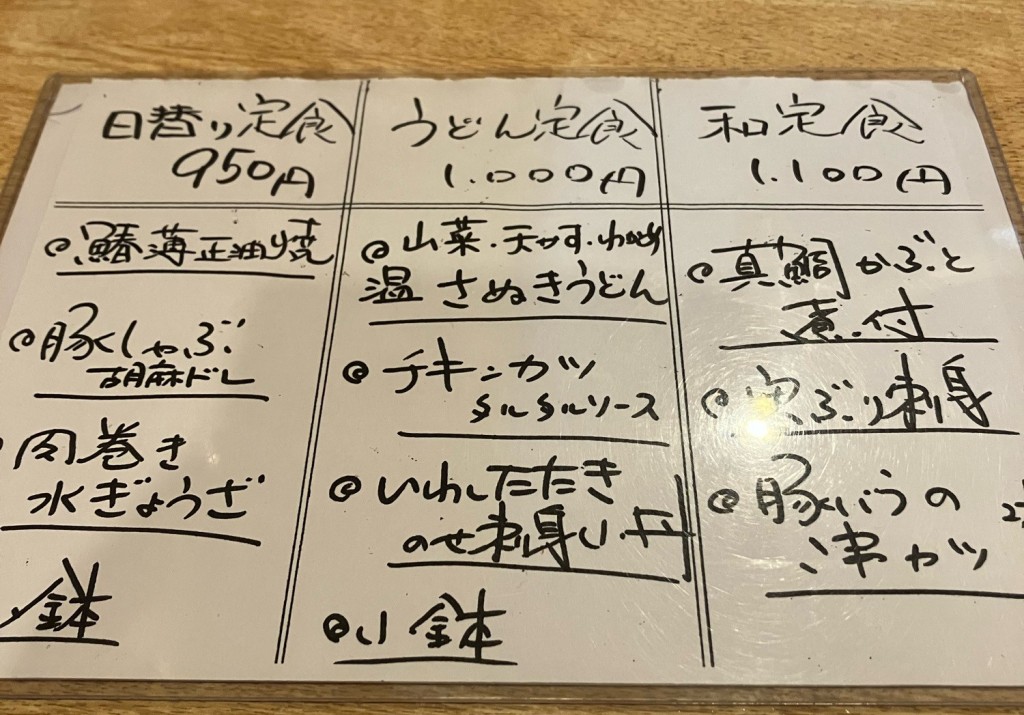 日替り定食
950円
◎鰆薄正油焼
◎豚しゃぶ
胡麻ドレ
肉巻き
水ぎょうざ
鉢
うどん定食
1.000円
◎山菜・天かす・わかめ
温さぬきうどん
◎チキンカツ
タルタルソース
◎いわしたたき
のせ刺身い丹
◎小鉢
和定食
1.100円
◎真鯛かぶと
煮付
◎寒ぶり刺身
◎豚バラの
カツ